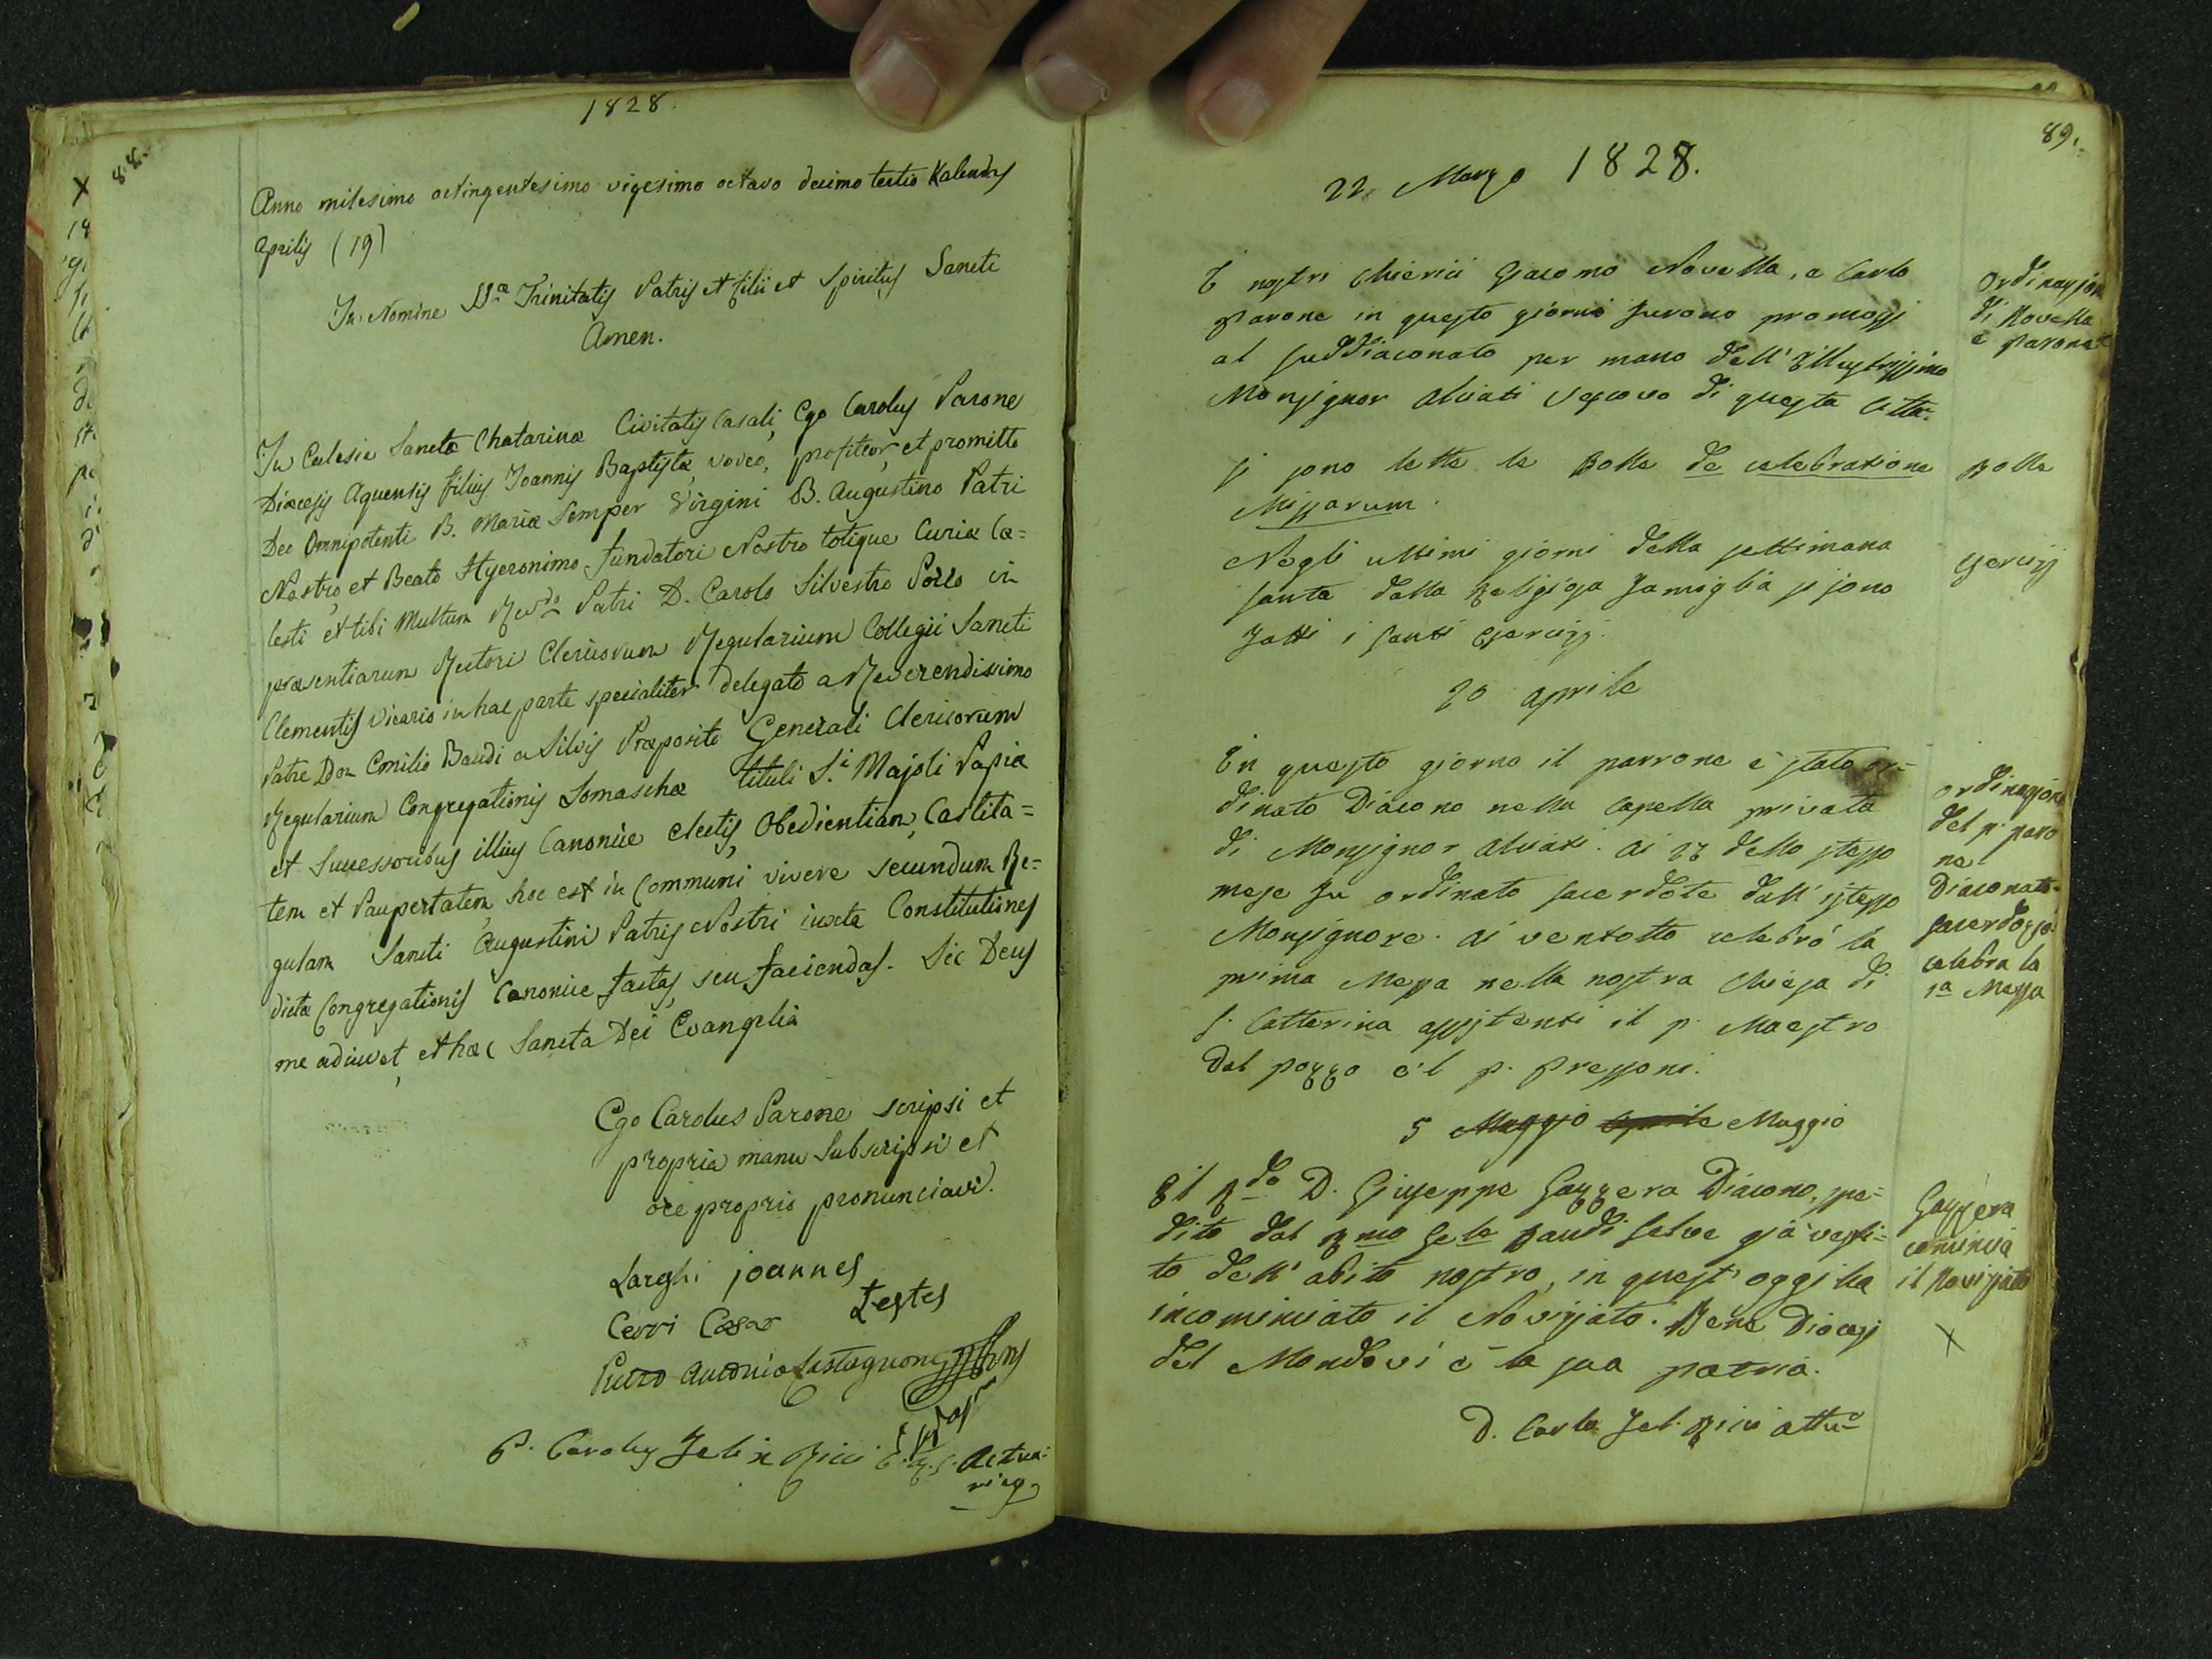 1828.
88.
Anno milesimo octingentesimo vigesimo octavo decimo tertio Kalendas
Aprilis (19)
In Nomine SS.æ Trinitatis Patris et filii et Spiritus Sancti
Amen.
In Eclesia Sanctæ Chatarinæ Civitatis Casalis, Ego Carolus Parone
Diœcesis Aquensis filius Joannis Baptistæ, voveo, profiteor, et promitto
Deo Omnipotenti B. Mariæ Semper Virgini B. Augustino Patri
Nostro, et Beato Hyeronimo Fundatori Nostro totique Curiæ Cæ=
lesti et tibi Multum Rev.do Patri D. Carolo Silvestro Pozzo in
præsentiarum Rectori Clericorum Regularium Collegii Sancti
Clementis Vicario in hac parte specialiter delegato a Reverendissimo
Patre Don Emilio Baudi a Silvis Præposito Generali Clericorum
Regularium Congregationis Somaschæ tituli S.i Majoli Papiæ
et Successoribus illius Canonice electis, Obedientiam, Castita=
tem et Paupertatem, hoc est in Communi vivere secundum Re=
gulam Sancti Augustini Patris Nostri iuxta Constitutiones
dictæ Congregationis Canonice factas, seu faciendas. Sic Deus
me adiuvet, et hæc Sancta Dei Evangelia
Ego Carolus Parone scripsi et
propria manu subscripsi et
ore proprio pronunciavi.
Larghi joannes
Testes
Cerri Cæsar
P. Carolus Felix Ricci Actua=
rius
89.
22. Marzo 1828.
I nostri Chierici Giacomo Novella, e Carlo
Parone in questo giorno furono promossi
al suddiaconato per mano dell'Illustrissimo
Monsignor Alciati Vescovo di questa Città.
Ordinazione
di Novella
e Parone
Si sono lette le Bolle de celebratione
Missarum.
Bolle
Negli ultimi giorni della settimana
santa dalla Religiosa famiglia si sono
fatti i santi esercizj.
Esercizj
20 Aprile
In questo giorno il parrone è stato or=
dinato Diacono nella Capella privata
di Monsignor Alciati. Ai 27 dello stesso
mese fu ordinato sacerdote dall'istesso
Monsignore. Ai ventotto celebrò la
prima Messa nella nostra Chiesa di
S. Catterina assistenti il p. Maestro
Dal pozzo e'l p. Pressoni.
Ordinazione
del p. paro
ne
Diaconato.
Sacerdozio
celebra la
1a Messa
5 Maggio Aprile Maggio
Il R.do D. Giuseppe Gazzera Diacono, spe=
dito dal R.mo G.le Baudi Selve già vesti=
to dell'abito nostro, in quest'oggi ha
incominciato il Noviziato. Bene Diocesi
del Mondovì è la sua patria.
Gazzera
comincia
il Noviziato
X
D. Carlo Fel. Ricci Att.o